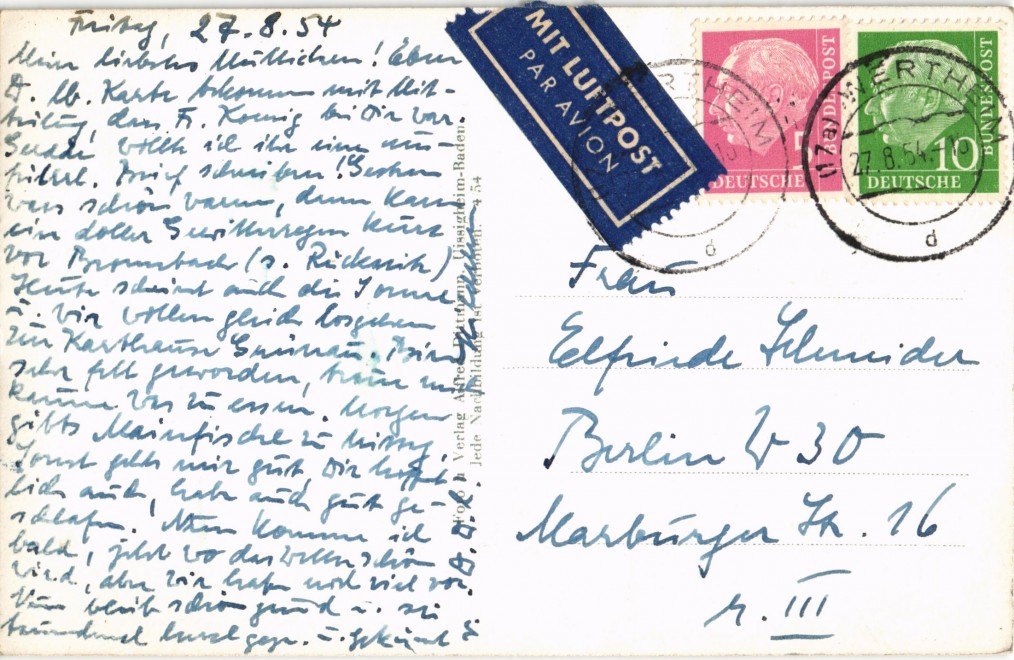 Freitag, 27.8.54
Mein liebstes Muttichen! Eben
D. lb. Karte bekommen mit Mit-
teilung, dass Fr. Koenig bei Dir war.
wollte ich ihr eben aus-
Brief schreiben! Gestern
war's schön warm, dann kam
ein doller Gewitterregen kurz
vor Bronnbach (s. Rückseite)
Heute scheint auch die Sonne
u. wir wollen gleich losgehen
zur Karthause Grünau. Bin
sehr fett geworden, traue mich
kaum was zu essen. Morgen
gibts Mainfische zu Mittag,
Sonst gehts mir gut, Dir hoffent-
lich auch, habe auch gut ge-
schlafen. Nun komme ich
bald, jetzt wo das Wetter schön
wird, aber wir haben noch viel vor.
Nun bleib schön gesund u. sei
tausendmal herzl. gegr. u. geküsst
Foto u. Verlag Alfred Uissigheim-Baden
Jede Nachbildung ist verboten. 4 54
MIT LUFTPOST
PAR AVION
DEUTSCHE
BUNDESPOST
5
DEUTSCHE
BUNDESPOST
10
WERTHEIM
d
(17a) WERTHEIM
27.8.54.
d
Frau
Elfriede Schneider
Berlin W 30
Marburger Str. 16
r. III